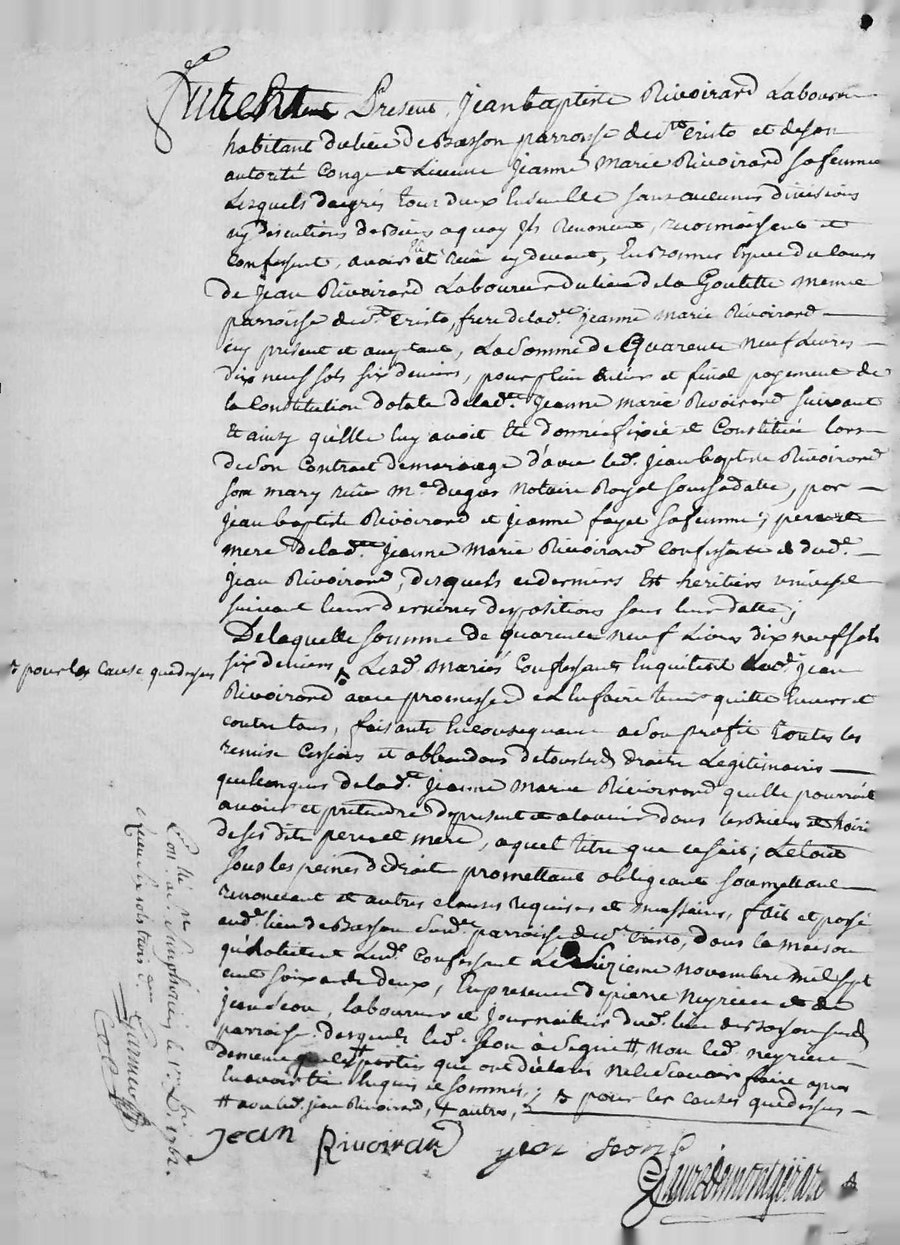 Furent Present, Jean baptiste Rivoirard Laboureur
habitant du lieu de Basson parroisse de st Cristo et de son
autorité Congé et Licence Jeanne Marie Rivoirard sa femme
Lesquels de grés tout deux Ensemble sans aucunes divisions
ny descutions de biens a quoy Ils Renoncent, reconnoissent et
Confessent, avoir Reçu cy devant, En bonnes Espece du cours
de Jean Rivoirard Laboureur du lieu de la Goutette meme
parroisse de st Cristo, frere de lad.te Jeanne Marie Rivoirard
cy présent et acceptant, La Somme de Quarente neuf Livres
dix neuf sols six deniers, pour plein Entier et final payement de
la Constitution dotale de lad.te Jeanne Marie Rivoirard suivant
Et ainsy qu'Elle luy avoit Eté donnée fixée et Constituée lors
de Son Contract de mariage d'avec led. Jean baptiste Rivoirard
son mary reçu Me Dugas Notaire Royal sous sa datte, par
Jean baptiste Rivoirard et Jeanne fayet sa femme, pere et
mere de lad.te Jeanne Marie Rivoirard confessante et dud.
Jean Rivoirard, desquels ce derniers Est heritiers universel
suivant leurs dernieres dispositions sous leur datte;
De laquelle somme de quarente neuf Livres dix neuf sols
six deniers Lesd. Mariés Confessants En quittent led. Jean
± pour les cause que dessus
Rivoirard avec promesse d'en faire tenir quitte Envers et
contre tous, faisants En consequance a Son profit toutes les
remise Cessions et abbandons de tous les droits Legitimaires
quelconques de lad.te Jeanne Marie Rivoirard qu'elle pourroit
avoir et prétendre de present et a lavenir dans les biens et hoirie
de ses dits pere et mere, a quel titre que ce soit; Le tout
sous les peines de droit promettant obligeant soumettant
renoncent et autres clauses requises et necessaires, fait et passé
aud. lieu de Basson Sud. parroisse de st Cristo, dans la maison
qu'habitent Lesd. Confessant Le Sizieme novembre mil sept
cent soixante deux, En presence de pierre Neyrieu et de
Jean Seon, laboureur et Journailier dud. lieu de Basson susd.
parroisse. desquels led. Seon a Signé #, Non led. neyrieu
de meme que les partis que ont déclarés ne le Scavoir faire apres
En avoir Eté Enquis et Sommés,; ± pour les causes que dessus
# avec led. Jean Rivoirard, + autres,
Con.lé n
a st Simphorien le 1er Xbre 1762.
Jean Rivoirard jean seon